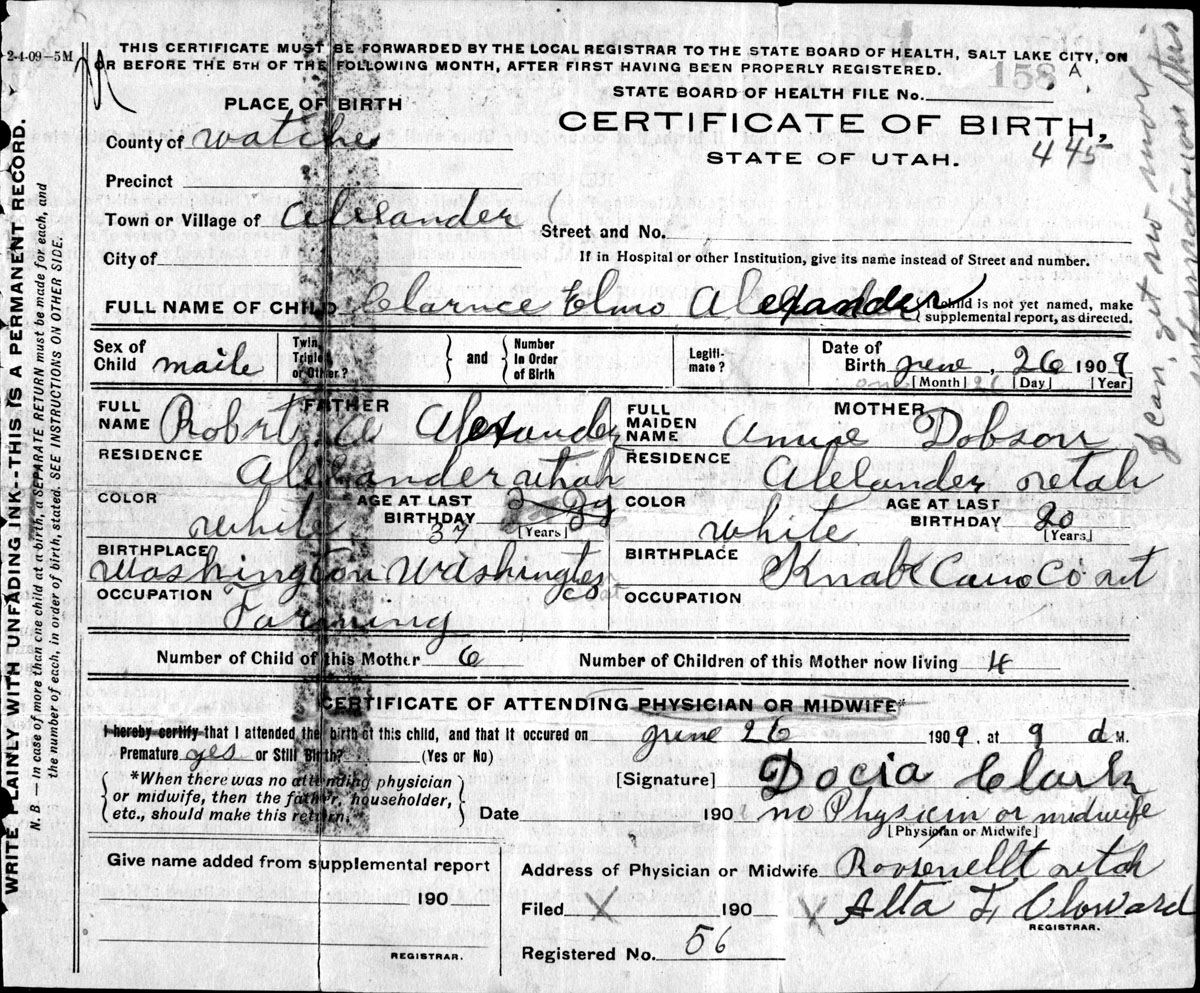 2-4-09—5M
THIS CERTIFICATE MUST BE FORWARDED BY THE LOCAL REGISTRAR TO THE STATE BOARD OF HEALTH, SALT LAKE CITY, ON
OR BEFORE THE 5TH OF THE FOLLOWING MONTH, AFTER FIRST HAVING BEEN PROPERLY REGISTERED.
158 A
STATE BOARD OF HEALTH FILE No.
PLACE OF BIRTH
CERTIFICATE OF BIRTH,
County of Watche
STATE OF UTAH. 445
Precinct
Town or Village of Alexander
Street and No.
City of
If in Hospital or other Institution, give its name instead of Street and number.
FULL NAME OF CHILD Clarnce Elmo Alexander
If child is not yet named, make
supplemental report, as directed.
Sex of Child maile
Twin, Triplet or Other?
and
Number In Order of Birth
Legiti-mate?
Date of Birth june, 26 1909
[Month] [Day] [Year]
FATHER
FULL NAME Robrt A Alexander
RESIDENCE Alexander utah
COLOR white
AGE AT LAST BIRTHDAY 37
[Years]
BIRTHPLACE Washington Washington co
OCCUPATION Farming
MOTHER
FULL MAIDEN NAME Annie Dobson
RESIDENCE Alexander utah
COLOR white
AGE AT LAST BIRTHDAY 20
[Years]
BIRTHPLACE Knab Cano Co ut
OCCUPATION
Number of Child of this Mother 6
Number of Children of this Mother now living 4
CERTIFICATE OF ATTENDING PHYSICIAN OR MIDWIFE*
I hereby certify that I attended the birth of this child, and that it occured on june 26 1909, at 9 M.
Premature yes or Still Birth? (Yes or No)
*When there was no attending physician
or midwife, then the father, householder,
etc., should make this return.
[Signature] Docia Clark
Date 190 no Physicin or midwife
[Physician or Midwife]
Give name added from supplemental report
190
REGISTRAR.
Address of Physician or Midwife Roosenellt utah
Filed X 190 X Alta F. Cloward
REGISTRAR.
Registered No. 56
WRITE PLAINLY WITH UNFADING INK--THIS IS A PERMANENT RECORD.
N. B. — in case of more then one child at birth, a SEPARATE RETURN must be made for each, and
the number of each, in order of birth, stated. SEE INSTRUCTIONS ON OTHER SIDE.
I can get no more
information on this